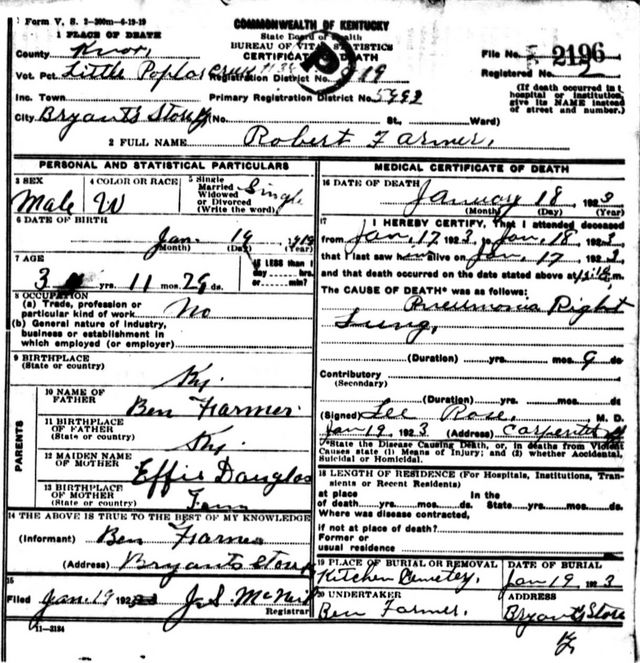 Form V. S. 2-200m-6-19-19
COMMONWEALTH OF KENTUCKY
State Board of Health
BUREAU OF VITAL STATISTICS
CERTIFICATE OF DEATH
1 PLACE OF DEATH
County Knox
Vot. Pct. Little Poplar Creek Registration District No. 919
Inc. Town Primary Registration District No. 5992
City Bryants Store (No. St., Ward)
File No. 2196
Registered No. 2
(If death occurred in a hospital or institution, give its NAME instead of street and number.)
2 FULL NAME Robert Farmer,
PERSONAL AND STATISTICAL PARTICULARS
3 SEX
Male
4 COLOR OR RACE
W
5 Single
Married
Widowed
or Divorced
(Write the word)
Single
6 DATE OF BIRTH
Jan. 19 1919
(Month) (Day) (Year)
7 AGE
3 yrs. 11 mos. 29 ds.
IS LESS than 1
day hrs.
or min?
8 OCCUPATION
(a) Trade, profession or
particular kind of work No
(b) General nature of industry,
business or establishment in
which employed (or employer)
9 BIRTHPLACE
(State or country)
Ky.
PARENTS
10 NAME OF
FATHER
Ben Farmer
11 BIRTHPLACE
OF FATHER
(State or country)
Ky.
12 MAIDEN NAME
OF MOTHER
Effie Douglas
13 BIRTHPLACE
OF MOTHER
(State or country)
Tenn
14 THE ABOVE IS TRUE TO THE BEST OF MY KNOWLEDGE
(Informant) Ben Farmer
(Address) Bryants Store
15
Filed Jan. 19 192 J. S. McNeil
Registrar
11-3184
MEDICAL CERTIFICATE OF DEATH
16 DATE OF DEATH
January 18, 1923
(Month) (Day) (Year)
17 I HEREBY CERTIFY, That I attended deceased
from Jan, 17 1923 to Jan, 18, 1923
that I last saw him alive on Jan, 17 1923
and that death occurred on the date stated above at m.
The CAUSE OF DEATH* was as follows:
Pneumonia Right
Lung,
(Duration) yrs. mos. 9 ds.
Contributory
(Secondary)
(Duration) yrs. mos. ds.
(Signed) Lee Rose, M. D.
Jan 19, 1923 (Address) Carpenter Ky
*State the Disease Causing Death, or, in deaths from Violent
Causes state (1) Means of Injury; and (2) whether Accidental,
Suicidal or Homicidal.
18 LENGTH OF RESIDENCE (For Hospitals, Institutions, Tran-
sients or Recent Residents)
at place In the
of death yrs. mos. ds. State yrs. mos. ds.
Where was disease contracted,
if not at place of death?
Former or
usual residence
19 PLACE OF BURIAL OR REMOVAL
Kitchen Cemetery,
DATE OF BURIAL
Jan 19, 1923
20 UNDERTAKER
Ben Farmer,
ADDRESS
Bryants Store
Ky